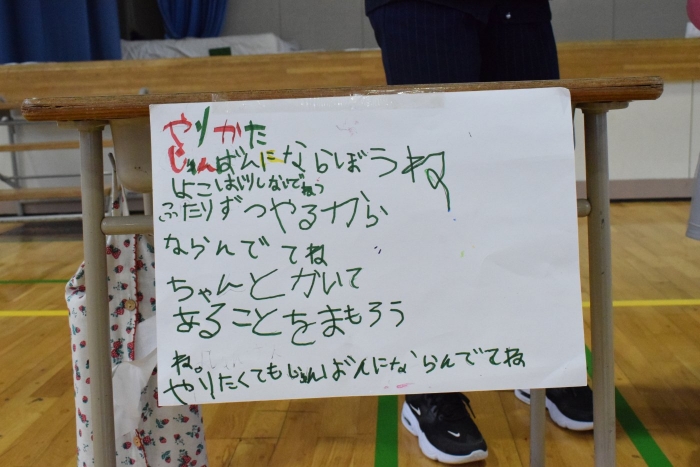 やりかた
じゅんばんにならぼうね
よこはいりしないでねっ
ふたりずつやるから
ならんでてね
ちゃんとかいて
あることをまもろう
ね。
やりたくてもじゅんばんにならんでてね